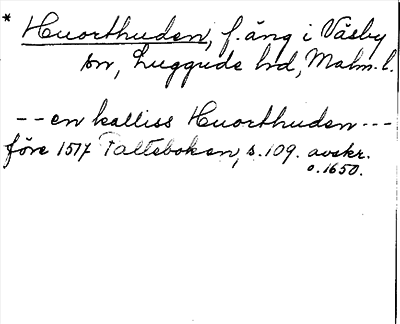 * Huorthuden, f. äng i Väsby
sn, Luggude hd, Malm. l.
-- en kalliss Huorthuden ---
före 1517 Palteboken, s. 109. avskr.
o. 1650.